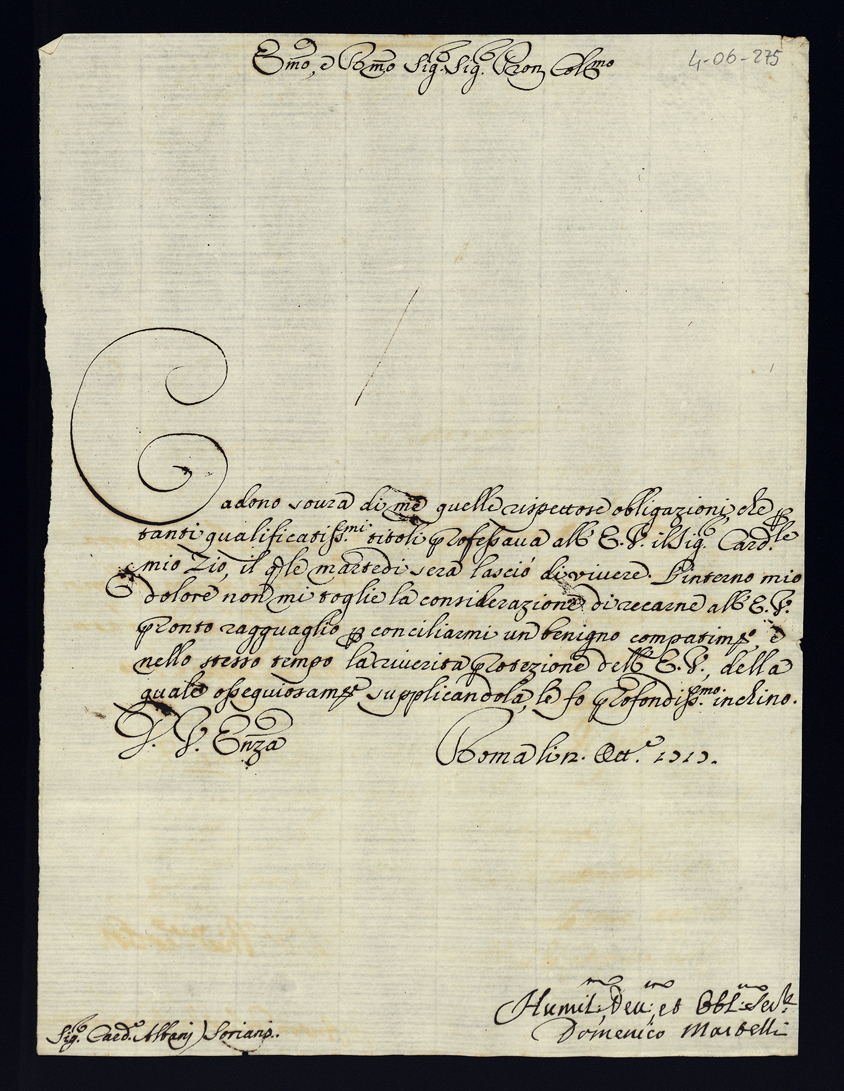 Em̃o, e Rm̃o Sig.r Sig.r Pron Col.mo
4-06-275
Cadono soura di me quelle rispettose obligazioni, che per
tanti qualificatiss.mi titoli professaua all' E. V. il Sig.r Card.le
mio Zio, il qle martedi sera lasciò di viuere. L'interno mio
dolore non mi toglie la considerazione di recarne all' E. V.
pronto ragguaglio p conciliarmi un benigno compatimto e
nello stesso tempo la riuerita protezione dell' E. V., della
quale ossequiosamte supplicandola, le fo profondiss.mo inchino.
D. V. Enza
Roma li 12. Ott.e
Humil.mo Deu.mo et Obl.mo Ser.re
Domenico
Sig.r Card. Albani) Soriano.